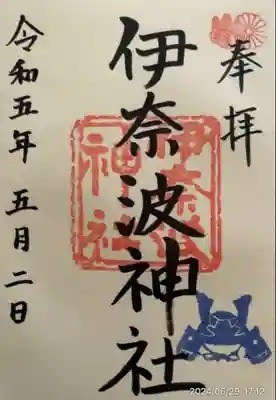 奉拝
伊奈波神社
伊奈波
神社
令和五年 五月二日
2024/06/29 17:12